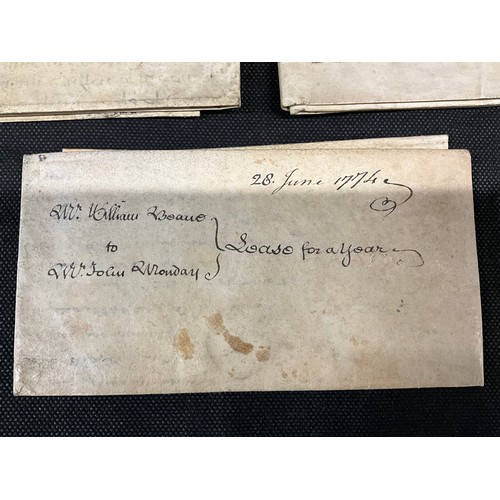 28. June 1774
Mr. William Deane
to
Mr. John Monday
Lease for a Year